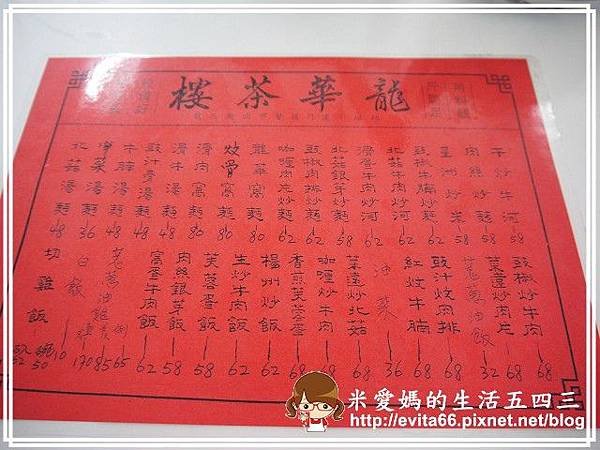 龍華茶樓
干炒牛河 58
肉絲炒麵 58
星洲炒米 58
豉椒牛腩炒河 62
北菇牛肉炒河 62
滑蛋牛肉炒河 62
北菇銀芽炒麵 62
豉椒肉排炒麵 62
咖喱肉片炒麵 62
龍華窩麵 80
炆骨窩麵 80
滑肉窩麵 80
滑牛湯麵 48
豉汁骨湯麵 48
牛腩湯麵 48
淨菜湯麵 36
北菇湯麵 48
豉椒炒牛肉 68
菜遠炒肉片 68
油飯 32
豉汁炆肉排 68
紅炆牛腩 68
油菜 36
菜遠炒北菇 68
咖喱炒牛肉 68
香煎芙蓉蛋 68
楊州炒飯 62
生炒牛肉飯 62
芙蓉蛋飯 58
肉絲銀芽飯 58
窩蛋牛肉飯 62
蔥油雞 65 85 170
白飯 10
切雞飯 50 52
米愛媽的生活五四三
http://evita66.pixnet.net/blog